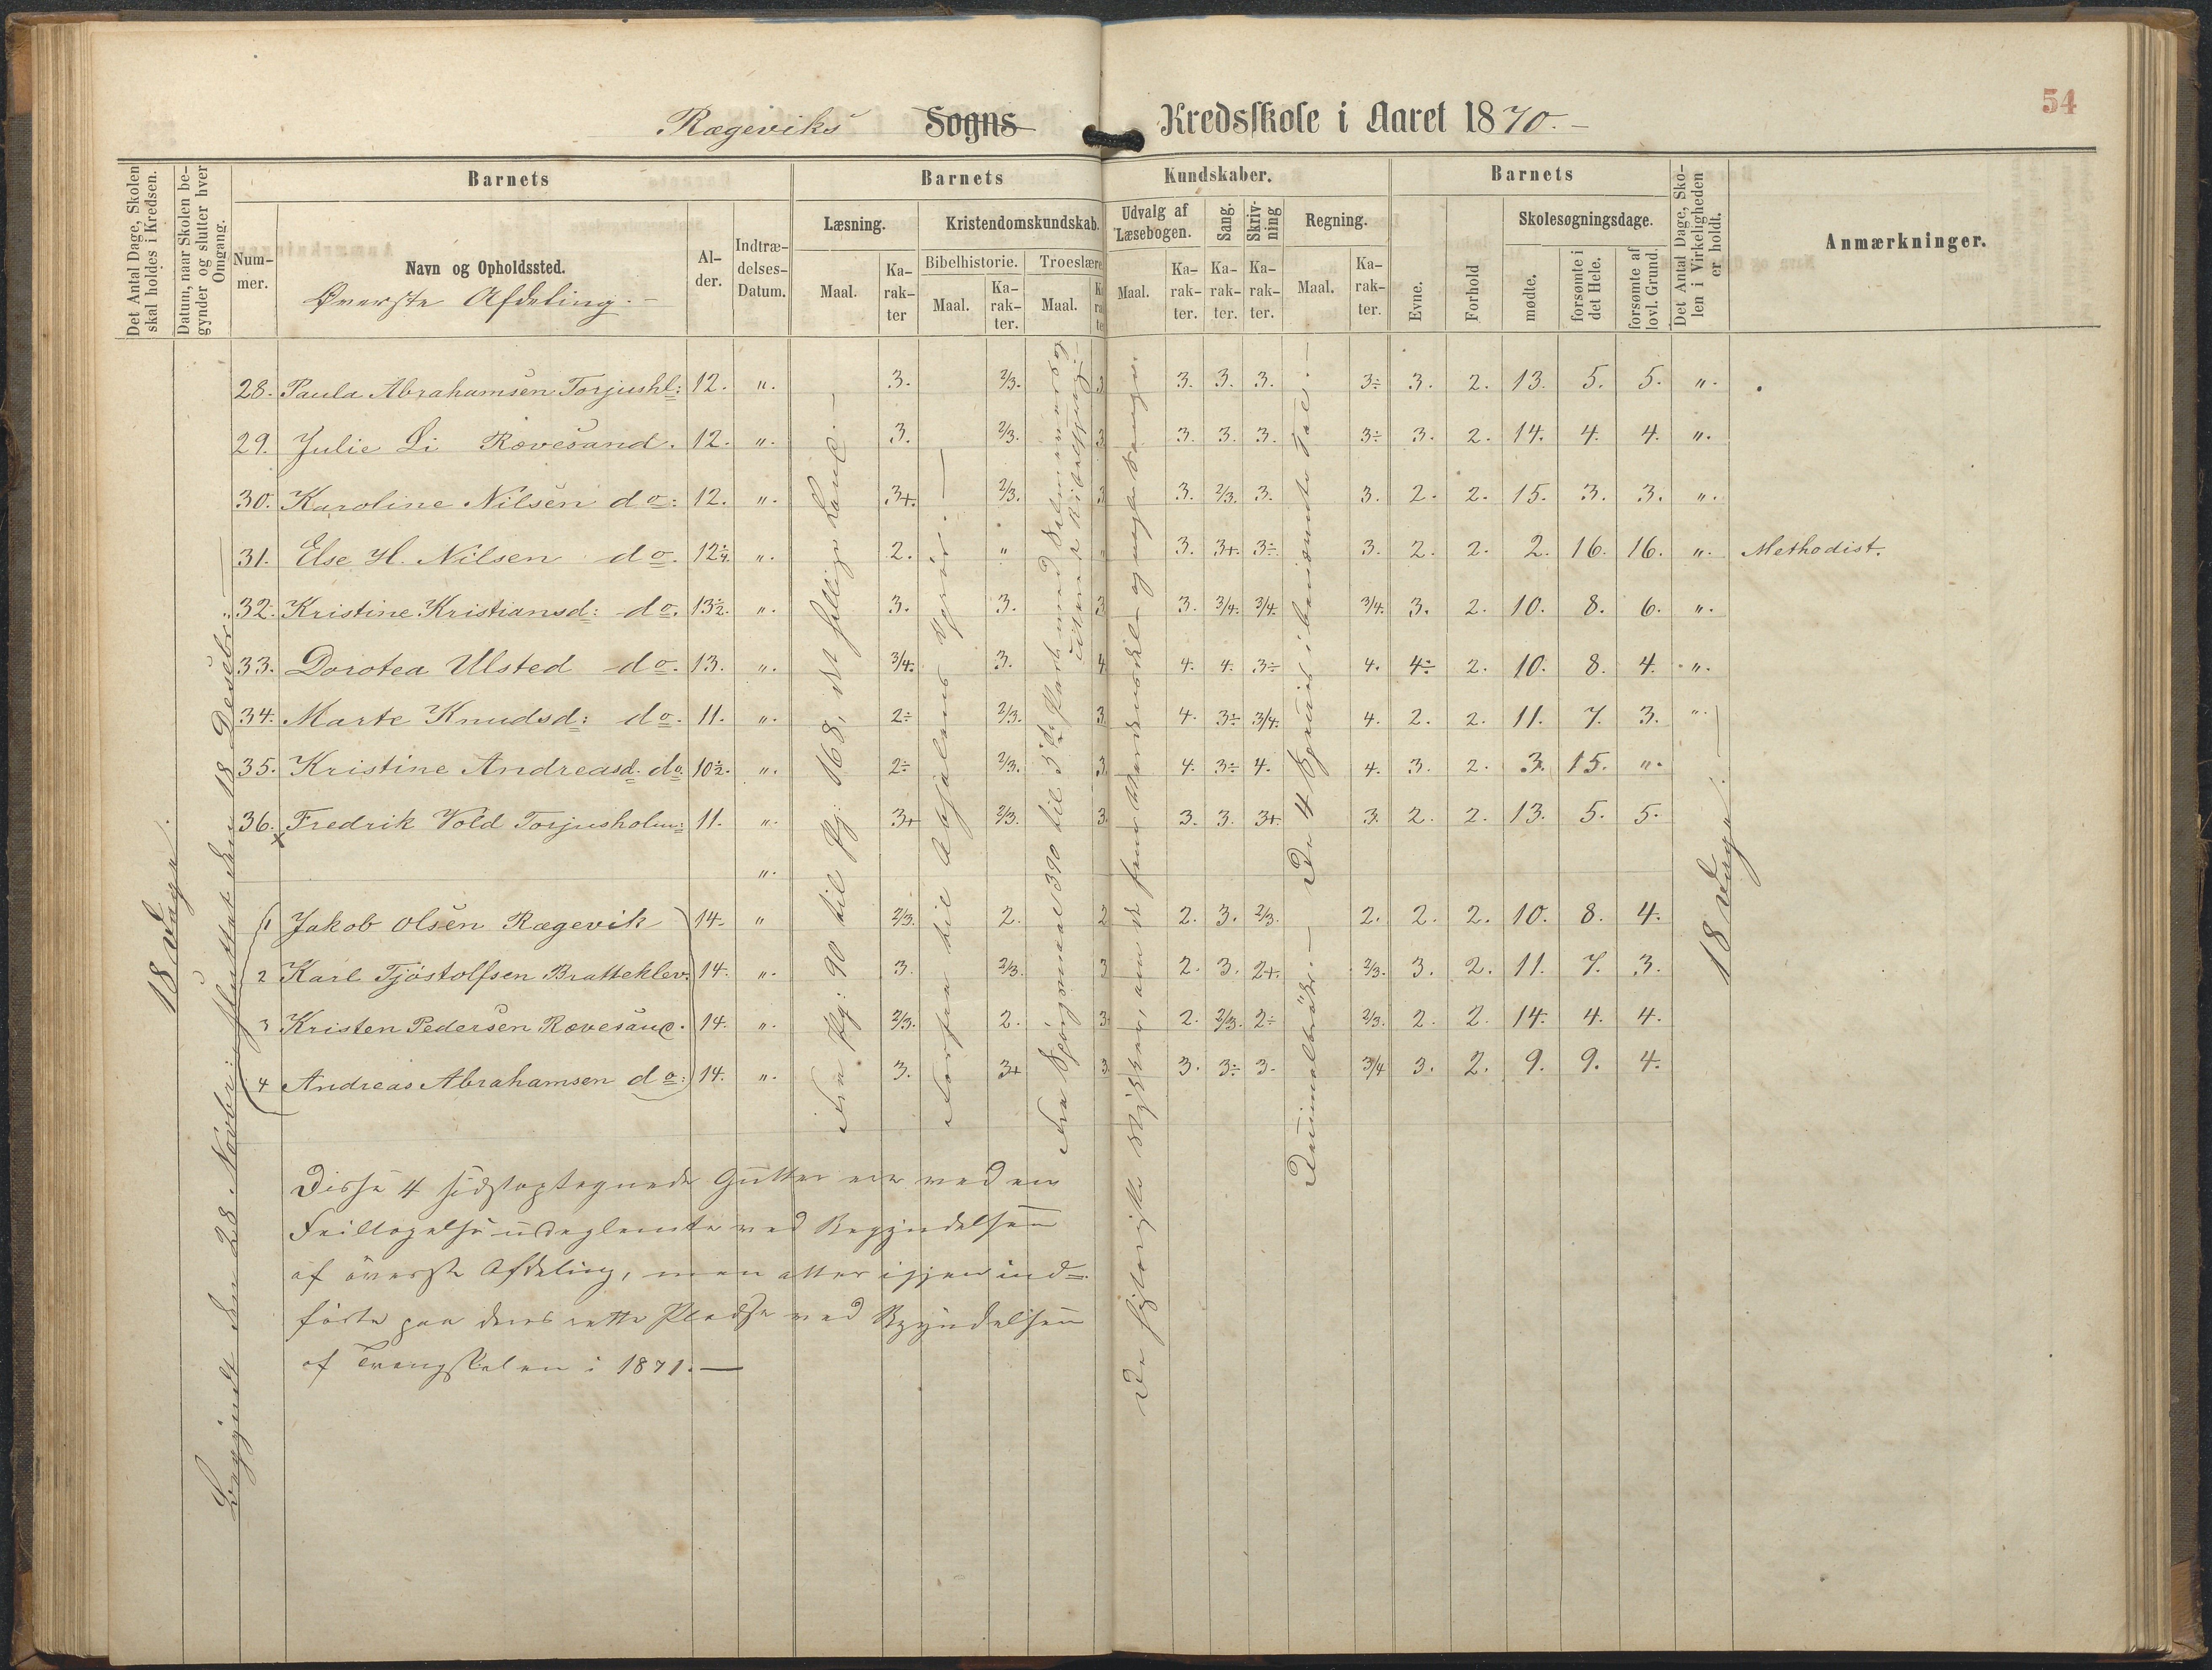 54
Rægeviks Sogns Kredsskole i Aaret 1870.-
Det Antal Dage, Skolen skal holdes i Kredsen.
Datum, naar Skolen begynder og slutter hver Omgang.
Barnets
Nummer.
Navn og Opholdssted.
Øverste Afdeling.-
Alder.
Indtrædelses-Datum.
Barnets Kundskaber.
Læsning.
Maal.
Karakter
Kristendomskundskab.
Bibelhistorie.
Maal.
Karakter.
Troeslære
Maal.
Udvalg af Læsebogen.
Maal.
Karakter.
Sang.
Karakter.
Skrivning
Karakter.
Regning.
Maal.
Karakter.
Barnets
Evne.
Forhold
Skolesøgningsdage.
mødte.
forsømte i det Hele.
forsømte af lovl. Grund.
Det Antal Dage, Skolen i Virkeligheden er holdt.
Anmærkninger.
28. Paula Abrahamsen Torjushl: 12. ". 3. 2/3. 3 3. 3. 3. 3÷ 3. 2. 13. 5. 5. ".
29. Julie Li Rævesand. 12. ". 3. 2/3. 3 3. 3. 3. 3÷ 3. 2. 14. 4. 4. ".
30. Karoline Nilsen do: 12. ". 3+. 2/3. 3 3. 2/3. 3. 3. 2. 2. 15. 3. 3. ".
31. Else H. Nilsen do. 12¼. ". 2. " " 3. 3+. 3÷ 3. 2. 2. 2. 16. 16. ". Methodist.
32. Kristine Kristiansd: do. 13½. ". 3. 3. 3 3. 3/4. 3/4. 3/4. 3. 2. 10. 8. 6. ".
33. Dorotea Ulsted do. 13. ". 3/4. 3. 4 4. 4. 3÷ 4. 4÷ 2. 10. 8. 4. ".
34. Marte Knudsd: do. 11. ". 2÷ 2/3. 3. 4. 3÷ 3/4. 4. 2. 2. 11. 7. 3. ".
35. Kristine Andreasd. do. 10½. ". 2÷ 2/3. 3. 4. 3÷ 4. 4. 3. 2. 3. 15. ".
36. Fredrik Vold Torjusholm: 11. ". 3+ 2/3. 3. 3. 3. 3+. 3. 2. 2. 13. 5. 5.
".
1 Jakob Olsen Rægevik 14. " 2/3. 2. 2 2. 3. 2/3. 2. 2. 2. 10. 8. 4.
2 Karl Tjöstolfsen Bratteklev. 14. ". 3. 2/3. 3 2. 3. 2+. 2/3. 3. 2. 11. 7. 3.
3 Kristen Pedersen Rævesand. 14. ". 2/3. 2. 3. 2. 2/3. 2÷ 2/3. 2. 2. 14. 4. 4.
4 Andreas Abrahamsen do: 14. ". 3. 3+ 3. 3. 3÷ 3. 3/4 3. 2. 9. 9. 4.
18 Dage.
Begyndt den 28 Novbr: sluttet den 18 Decbr.
Fra Pg: 90 til Pg: 168, det hellige Land.-
til Absalons Oprør.-
Fra Spørgsmaal 390 til 5te Part med
De historiske Stykker,
De 4 Specier i benævnte Tal.-
Decimalbrøk.-
18 Dage.
Disse 4 sidstoptegnede Gutter ere ved en
Feiltagelse udeglemte ved Begyndelsen
af överste Afdeling, men atter igjen ind=
förte paa deres rette Pladse ved Begyndelsen
af Tvangskolen i 1871.-